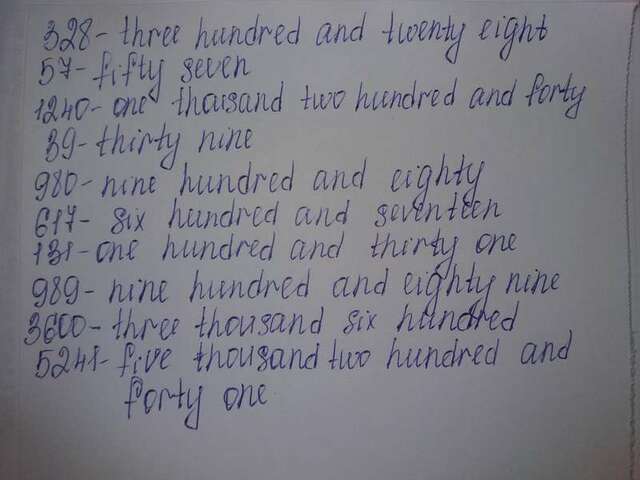 328- three hundred and twenty eight
57- fifty seven
1240- one thousand two hundred and forty
39- thirty nine
980- nine hundred and eighty
617- six hundred and seventeen
131- one hundred and thirty one
989- nine hundred and eighty nine
3600- three thousand six hundred
5241- five thousand two hundred and
forty one